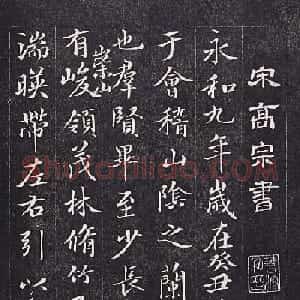 宋高宗書
永和九年歲在癸丑
于會稽山陰之蘭
也羣賢畢至少長
有崇山峻領茂林脩竹
湍暎帶左右引以
Shufaziliao.com